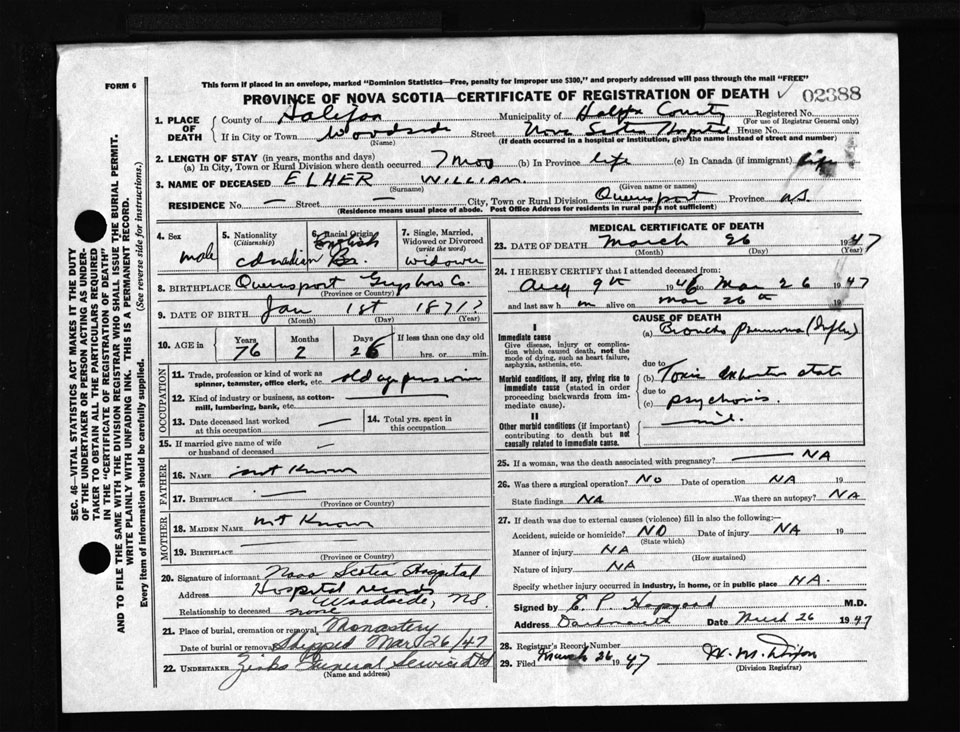 FORM 6
This form if placed in an envelope, marked "Dominion Statistics—Free, penalty for improper use $300," and properly addressed will pass through the mail "FREE"
PROVINCE OF NOVA SCOTIA—CERTIFICATE OF REGISTRATION OF DEATH ✓ 02388
1. PLACE OF DEATH
County of Halifax Municipality of Halifax County Registered No.
(For use of Registrar General only)
If in City or Town Woodside Street Nova Scotia Hospital House No.
(Name) (If death occurred in a hospital or institution, give the name instead of street and number)
2. LENGTH OF STAY (in years, months and days)
(a) In City, Town or Rural Division where death occurred 7 mos (b) In Province life (c) In Canada (if immigrant) life
3. NAME OF DECEASED ELHER WILLIAM.
(Surname) (Given name or names)
RESIDENCE No. — Street — City, Town or Rural Division Queensport Province N.S.
(Residence means usual place of abode. Post Office Address for residents in rural parts not sufficient)
4. Sex
male
5. Nationality
(Citizenship)
Canadian Br.
6. Racial Origin
English
7. Single, Married,
Widowed or Divorced
(write the word)
widower
8. BIRTHPLACE Queensport Guysboro Co.
(Province or Country)
9. DATE OF BIRTH Jan 1st 1871?
(Month) (Day) (Year)
10. AGE in
Years Months Days If less than one day old
76 2 26 hrs. or min.
OCCUPATION
11. Trade, profession or kind of work as
spinner, teamster, office clerk, etc. old age pension
12. Kind of industry or business, as cotton-
mill, lumbering, bank, etc.
13. Date deceased last worked
at this occupation —
14. Total yrs. spent in
this occupation —
15. If married give name of wife
or husband of deceased —
FATHER
16. NAME not known
17. BIRTHPLACE —
(Province or Country)
MOTHER
18. MAIDEN NAME not known
19. BIRTHPLACE —
(Province or Country)
20. Signature of informant Nova Scotia Hospital
Hospital records
Address Woodside, N.S.
Relationship to deceased none
21. Place of burial, cremation or removal Monastery
Date of burial or removal Shipped Mar 26/47
22. UNDERTAKER General Service Ltd
(Name and address)
MEDICAL CERTIFICATE OF DEATH
23. DATE OF DEATH March 26 1947
(Month) (Day) (Year)
24. I HEREBY CERTIFY that I attended deceased from:
Aug 9th 1946 to Mar 26 1947
and last saw h im alive on Mar 26th 19
CAUSE OF DEATH
I
Immediate cause
Give disease, injury or compli-
cation which caused death, not the
mode of dying, such as heart failure,
asphyxia, asthenia, etc.
(a) Broncho Pneumonia
due to
Morbid conditions, if any, giving rise to
immediate cause (stated in order
proceeding backwards from im-
mediate cause).
(b) Toxic exhaustive state
due to
(c) psychosis.
II
Other morbid conditions (if important)
contributing to death but not
causally related to immediate cause.
nil.
25. If a woman, was the death associated with pregnancy? — NA
26. Was there a surgical operation? NO Date of operation NA 19
State findings NA Was there an autopsy? NA
27. If death was due to external causes (violence) fill in also the following:—
Accident, suicide or homicide? NO Date of injury NA 19
(State which)
Manner of injury NA
(How sustained)
Nature of injury NA
Specify whether injury occurred in industry, in home, or in public place NA.
Signed by E. P. Hopgood M.D.
Address Dartmouth Date March 26 1947
28. Registrar's Record Number
29. Filed March 26 1947 W. M. Dixon
(Division Registrar)
SEC. 46—VITAL STATISTICS ACT MAKES IT THE DUTY
OF THE UNDERTAKER OR PERSON ACTING AS UNDER-
TAKER TO OBTAIN ALL THE PARTICULARS REQUIRED
IN THE "CERTIFICATE OF REGISTRATION OF DEATH"
AND TO FILE THE SAME WITH THE DIVISION REGISTRAR WHO SHALL ISSUE THE BURIAL PERMIT.
WRITE PLAINLY WITH UNFADING INK. THIS IS A PERMANENT RECORD.
Every item of information should be carefully supplied. (See reverse side for instructions.)